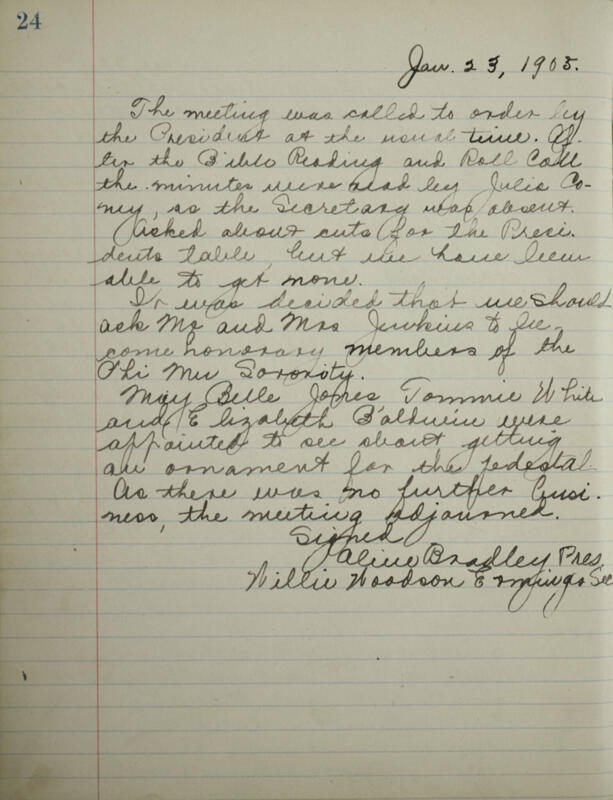 24
Jan. 23, 1905.
The meeting was called to order by
the President at the usual time. Af-
ter the Bible Reading and Roll Call
the minutes were read by Julia Co-
ney, as the Secretary was absent.
Asked about cuts for the Presi-
dents table, but we have been
able to get none.
It was decided that we should
ask Mr and Mrs Jenkins to be-
come honorary members of the
Phi Mu Sorority.
May Belle Jones Tommie White
and Elizabeth Baldwin were
appointed to see about getting
an ornament for the pedestal.
As there was no further busi-
ness, the meeting adjourned.
Signed
Aline Bradley Pres.
Willie Woodson Sec